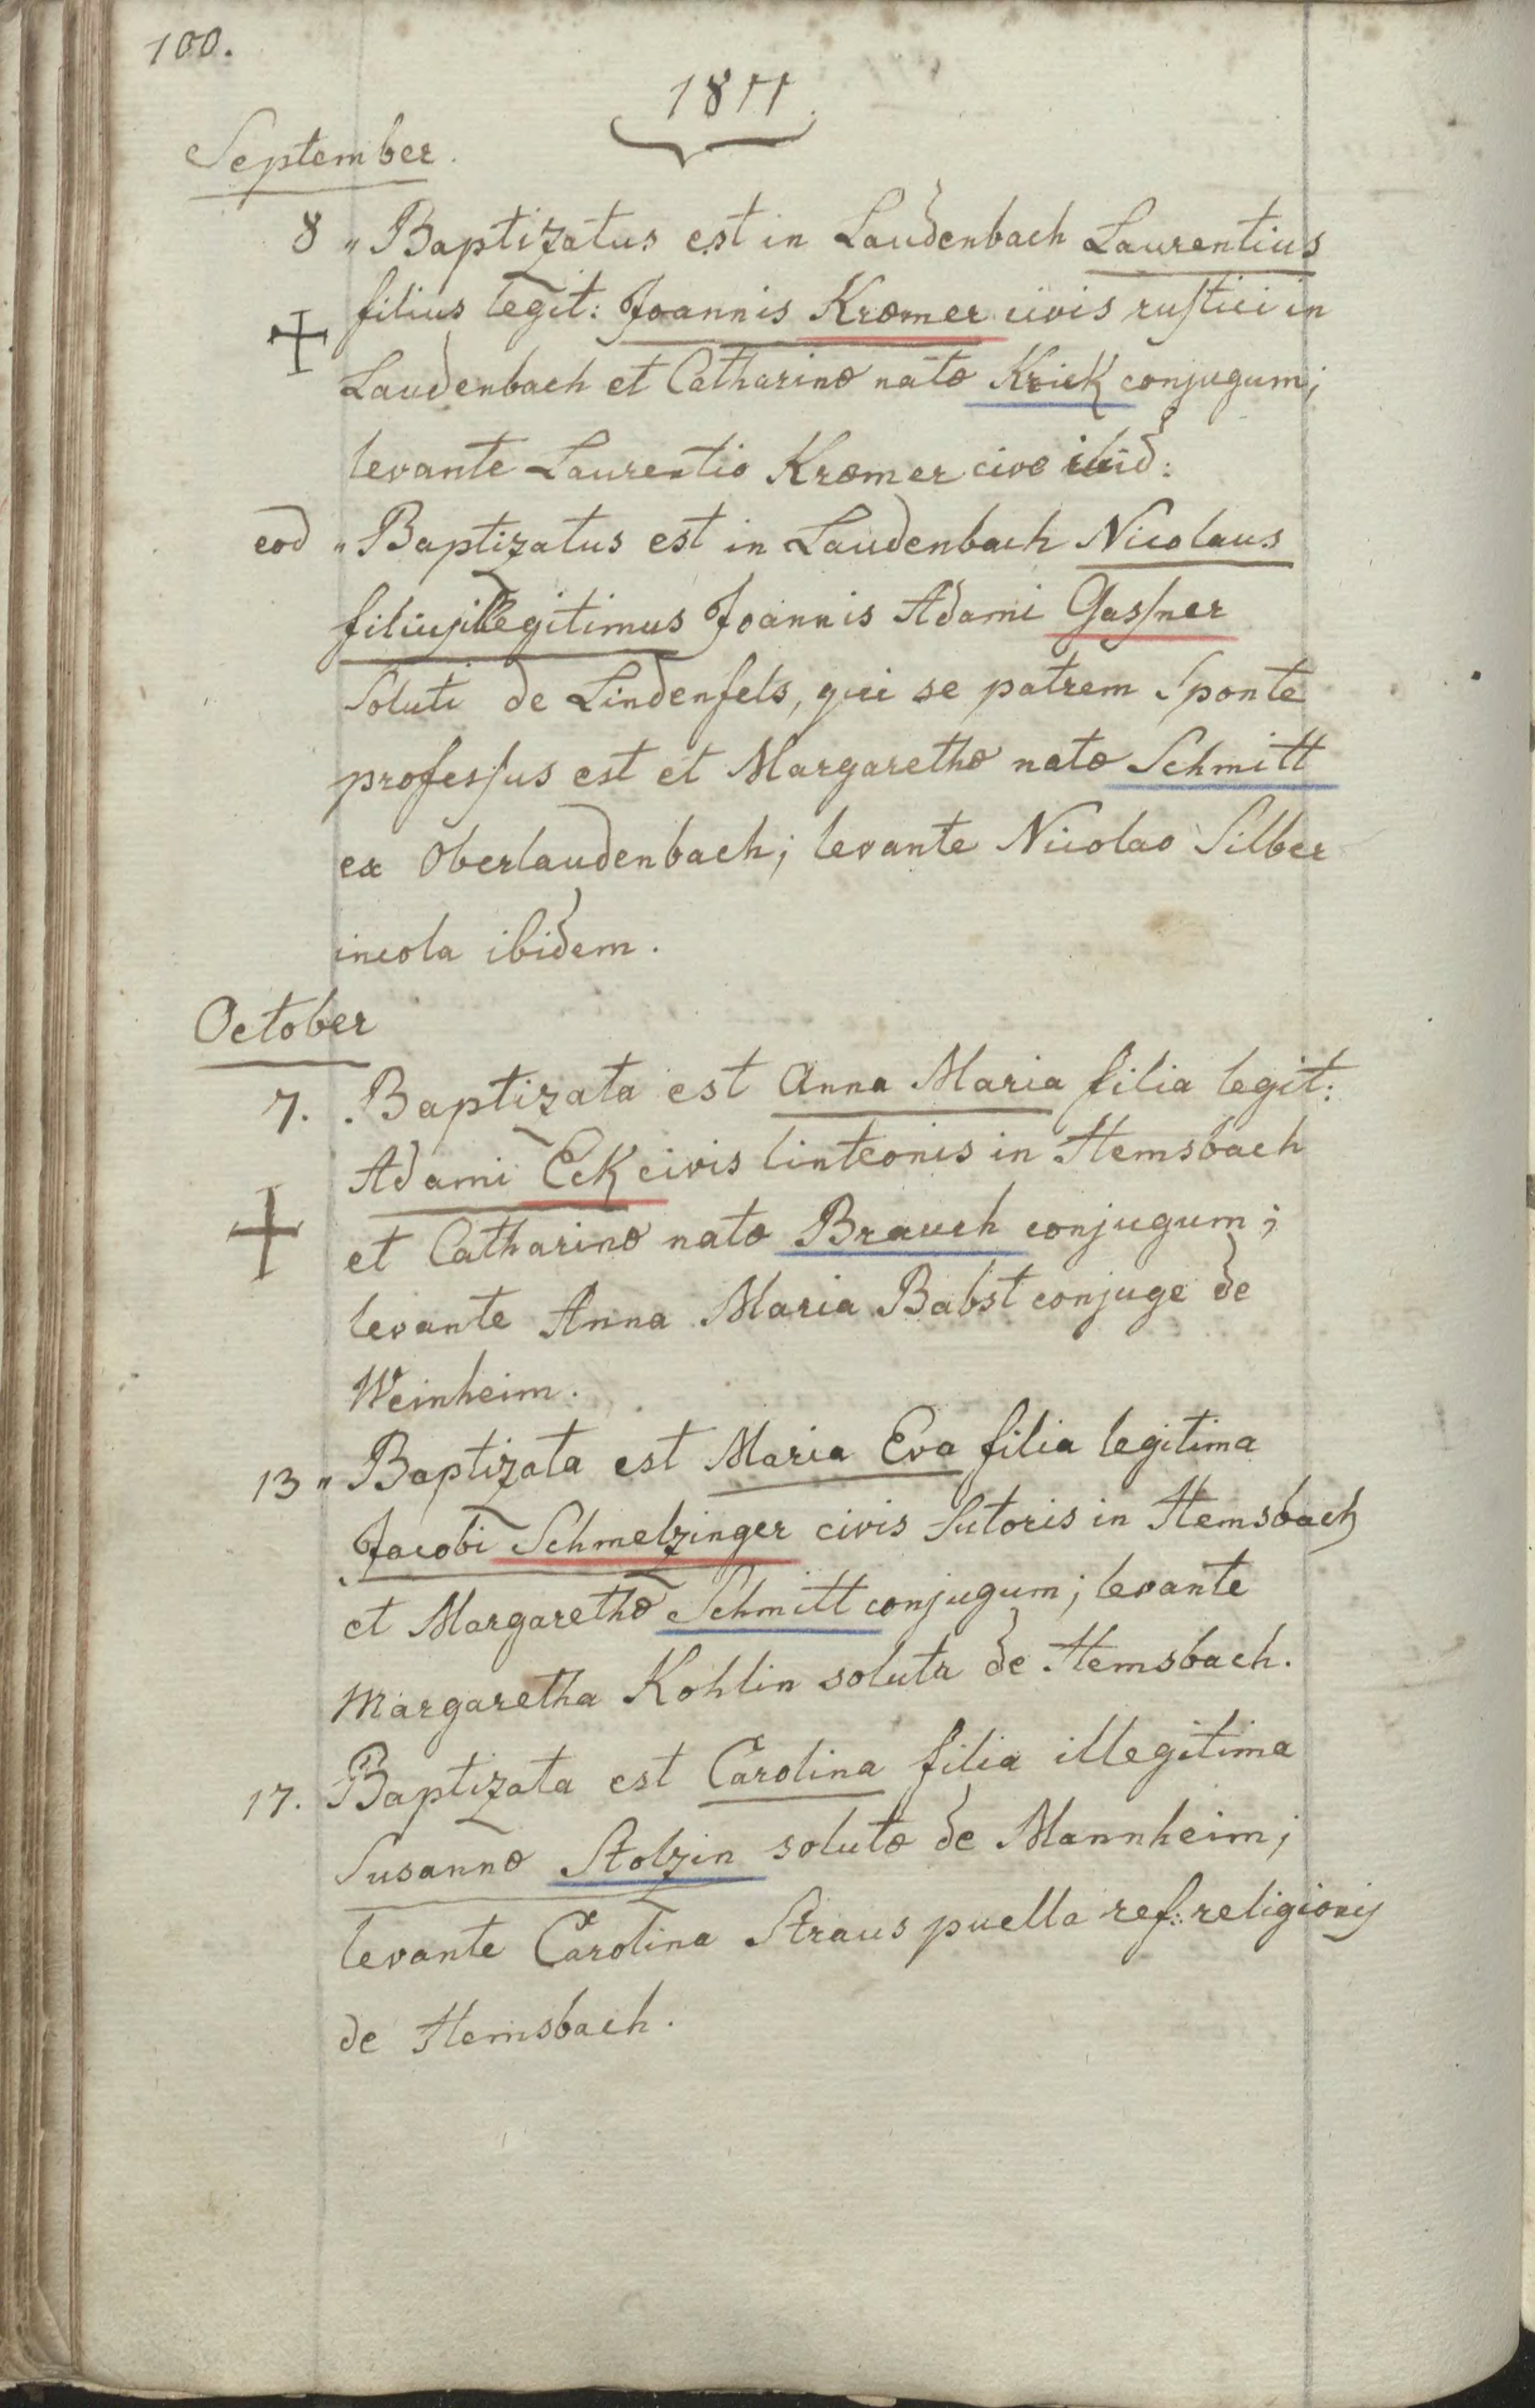 100.
1811
September.
8 „ Baptizatus est in Laudenbach Laurentius
filius legit: Joannis Kræmer civis rustici in
Laudenbach et Catharinæ natæ Krick conjugum;
levante Laurentio Kræmer cive ibid:
eod „ Baptizatus est in Laudenbach Nicolaus
filius illegitimus Joannis Adami Gassner
Soluti de Lindenfels, qui se patrem Sponte
professus est et Margarethæ natæ Schmitt
ex Oberlaudenbach; levante Nicolao Silber
incola ibidem.
October
7. Baptizata est Anna Maria filia legit:
Adami Eck civis linteonis in Hemsbach
et Catharinæ natæ Brauch conjugum;
levante Anna Maria Babst conjuge de
Weinheim.
13 „ Baptizata est Maria Eva filia legitima
Jacobi Schmelzinger civis Sutoris in Hemsbach
et Margarethæ Schmitt conjugum; levante
Margaretha Kohlin soluta de Hemsbach.
17. Baptizata est Carolina filia illegitima
Susannæ Stolzin solutæ de Mannheim;
levante Carolina Straus puella ref: religionis
de Hemsbach.